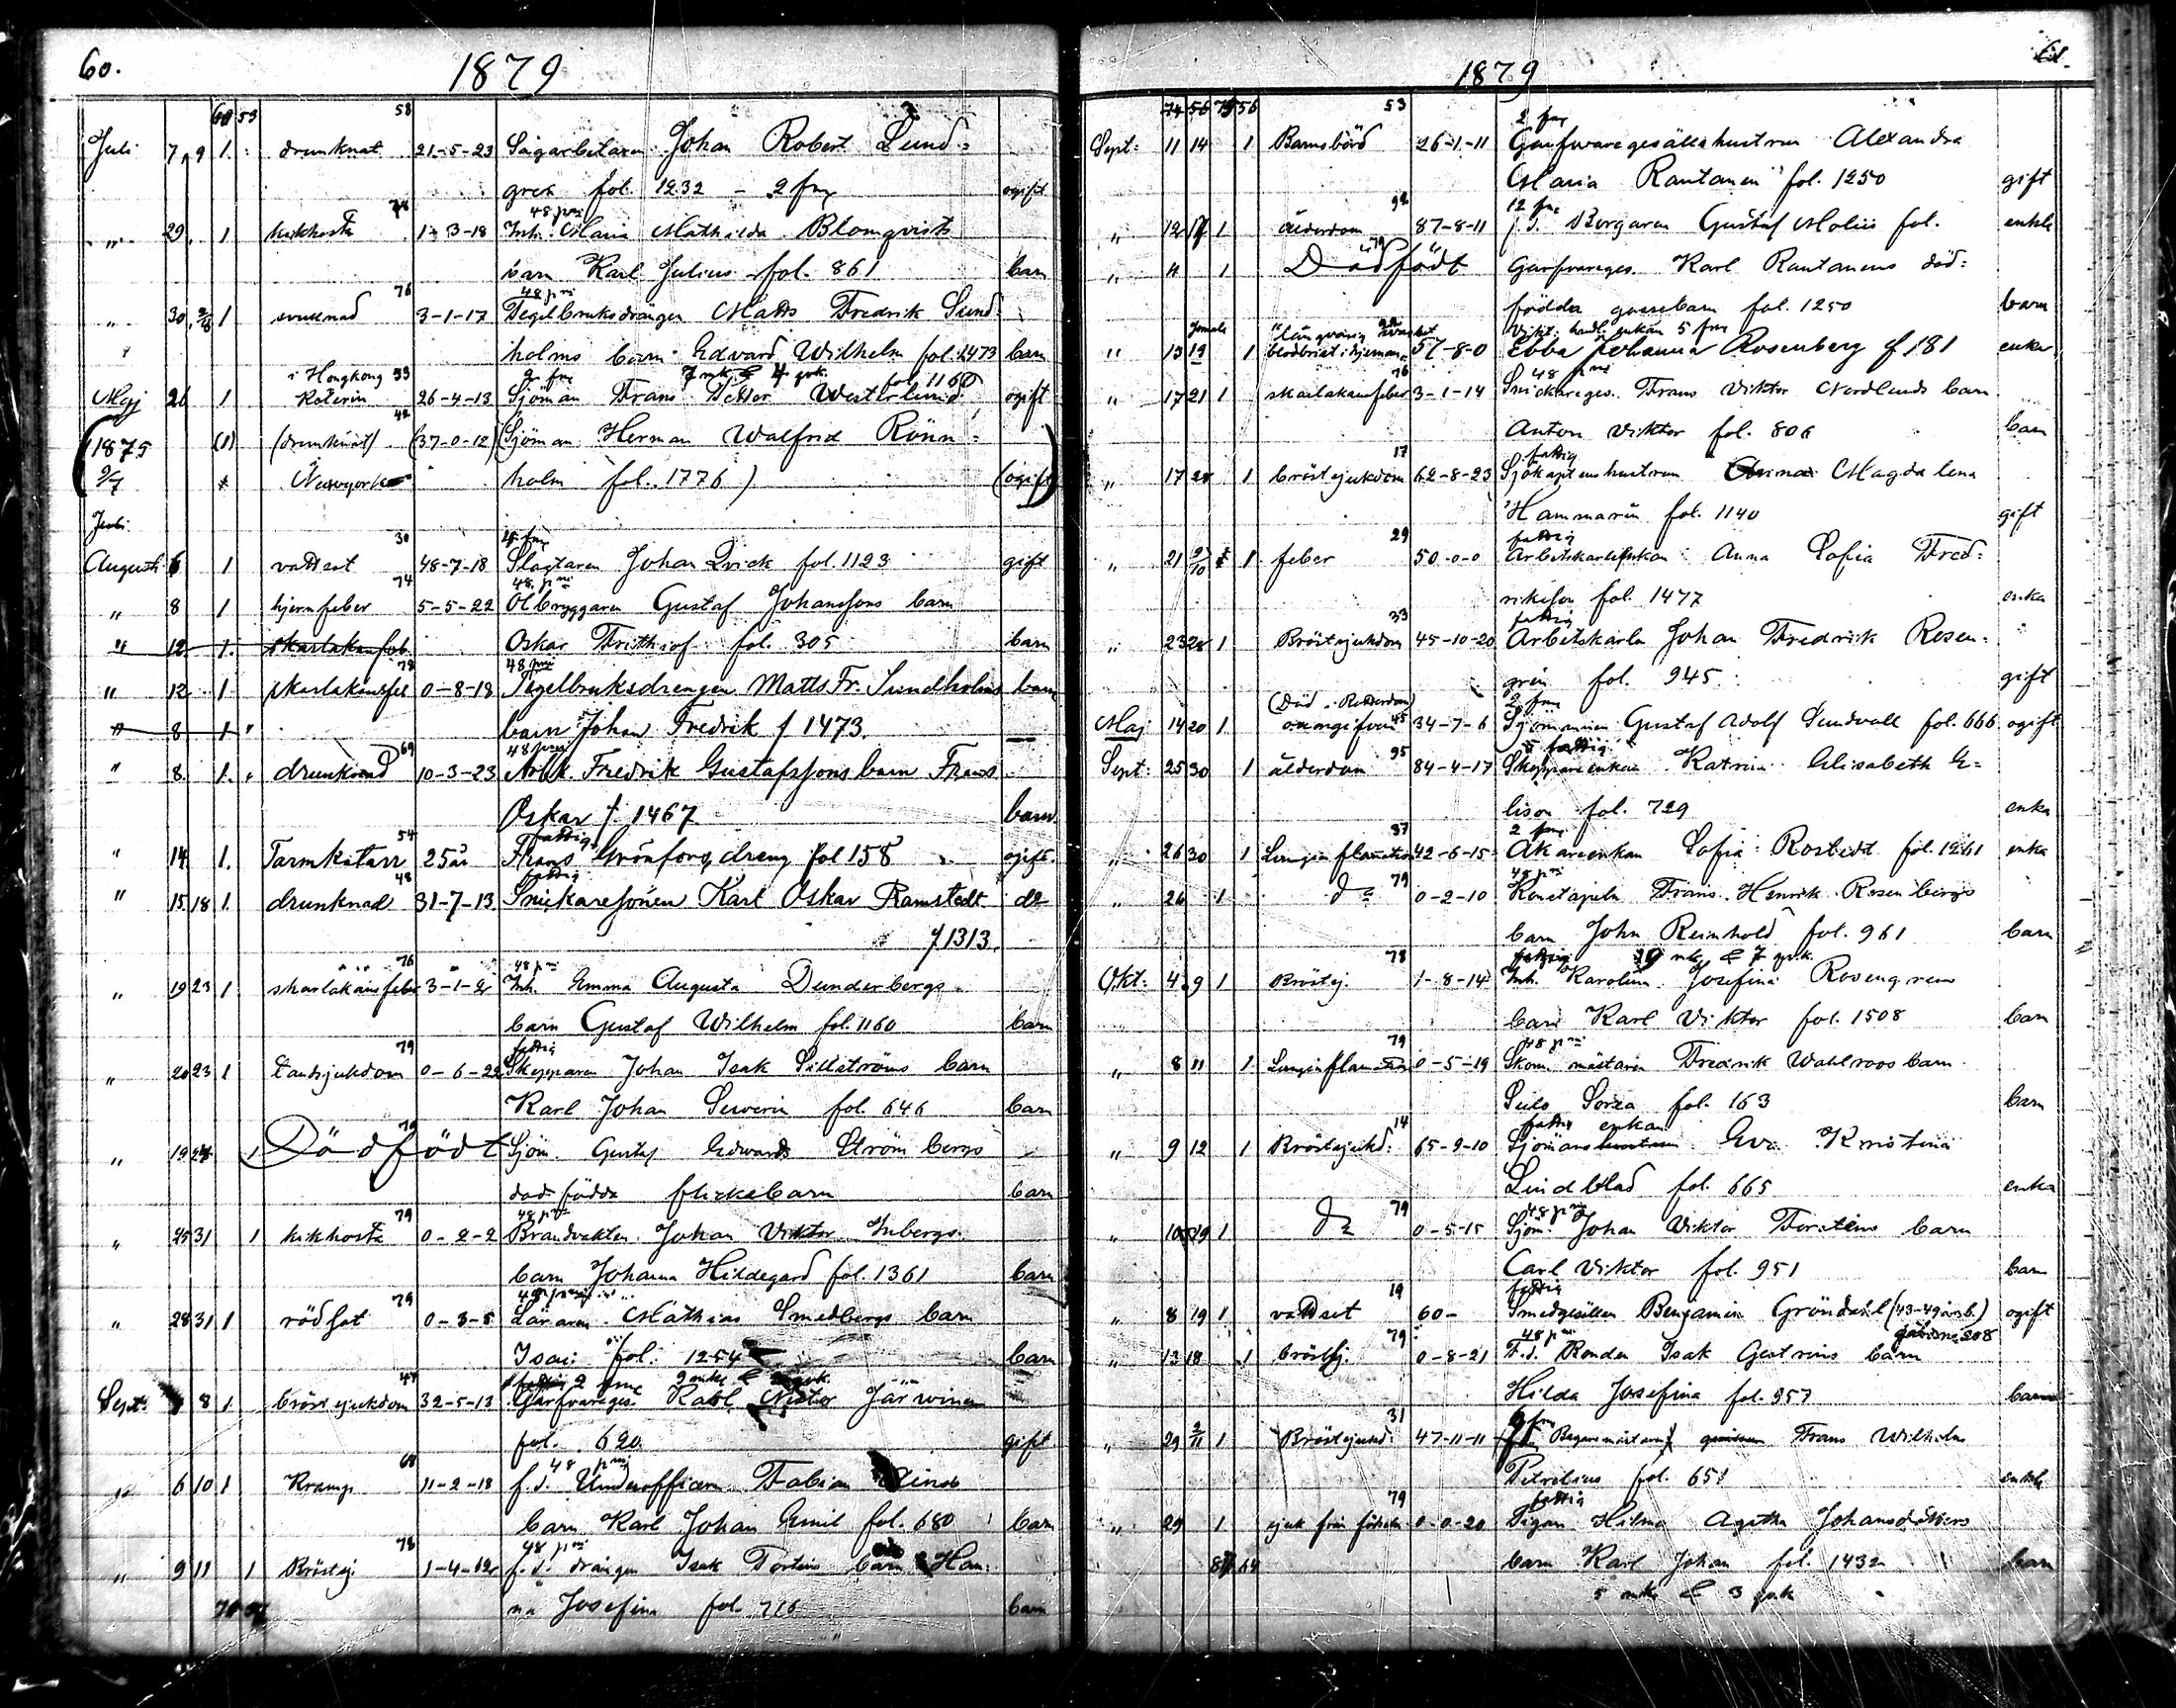 60.
1879
60 53
58
Juli 7 9 1. drunknat 21-5-23 Sågarbetaren Johan Robert Lund=
gren fol. 1232 - 2 fmk ogift
74 48 pni
" 29. 1 kikhosta 1-3-18 Inh. Maria Mathilda Blomqvists
barn Karl Julius fol. 861 barn
76 48 pni
" 30 2/8 1 svullnad 3-1-17 Tegelbruksdrängen Matts Fredrik Sund=
holms barn Edvard Wilhelm fol. 1473 barn
i Hongkong 53 2 fmk fol. 1160
Maj 26 1 26-4-13 Sjöman Frans Westerlund ogift
42
(1875 (1) (drunknat) (37-0-12) (Sjöman Herman Walfrid Rönn=
2/7 Newyork holm fol. 1776) (ogift)
Juli
30 4 fmk
Augusti 6 1 vattsot 48-7-18 Slagtaren Johan Qvick fol. 1123 gift
74 48 pni
" 8 1 hjernfeber 5-5-22 Ölbryggaren Gustaf Johanssons barn
" 12 1. skarlakansfeb. Oskar Frithiof fol. 305 barn
79 48 pni
" 12 1 skarlakansfeb 0-8-18 Tegelbruksdrengen Matts Fr. Sundholms barn
" 8 1 " barn Johan Fredrik f 1473.
69 48 pni
" 8. 1. drunknad 10-3-23 Arbk. Fredrik Gustafssons barn Frans
Oskar f. 1467 barn
54 fattig
" 14 1. Tarmkatarr 25 år Frans Grönfors, dreng fol 158 ogift.
48 fattig
" 15 18 1. drunknad 31-7-13. Snickaresonen Karl Oskar Ramstedt do
f 1313.
76 48 pni
" 19 23 1 skarlakansfeber Inh. Emma Augusta Dunderbergs
barn Gustaf Wilhelm fol. 1160 barn
79 fattig
" 20 23 1 tandsjukdom 0-6-22 Skepparen Johan Isak Sillströms barn
Karl Johan Severin fol. 646 barn
79
" 19 24 1 Dödfödt Sjöm. Gustaf Edvards Strömbergs
dödfödda flickebarn barn
79 48 pni
" 25 31 1 kikhosta 0-2-2 Brandvakten Johan Viktor Inbergs
barn Johanna Hildegard fol. 1361 barn
79
" 28 31 1 rödsot 0-3-5 Läraren Mathias Smedbergs barn
Isai fol. 1254 barn
47 2 fmk
Sept: 8 1 bröstsjukdom 32-5-13 Garfvareges. Karl Nestor Järvinen
fol. 690. gift
68 48 pni
" 6 10 1 Kramp 11-2-18 f.d. Underofficern Fabian Linds
barn Karl Johan Emil fol. 680 barn
78 48 pni
" 9 11 1 Bröstsj. 1-4-12 f.d. drängen Isak Torsteins barn Han=
na Josefina fol. 716 barn
61.
1879
74 56 75 56
53 2 fmk
Sept: 11 14 1 Barnsbörd 26-1-11 Garfvaregesällshustrun Alexandra
Maria Rantanen fol. 1250 gift
92 12 fmk
" 12 17 1 ålderdom 87-8-11 f.d. Borgaren Gustaf Molin fol. enkl
79
" 11 1 Dödfödt Garfvareges. Karl Rantanens död=
födda gossebarn fol. 1250 barn
Jomala långvarig 22 Vikt. handl. enkan 5 fmk
" 13 19 1 blodbrist i hjernan 57-8-0 Ebba Johanna Rosenberg f 181 enka
76 48 pni
" 17 21 1 skarlakansfeber 3-1-14 Snickareges. Frans Viktor Nordlunds barn
Anton Viktor fol. 806 barn
17 fattig
" 17 28 1 bröstsjukdom 62-8-23 Sjökaptenshustrun Magdalena
Hammarén fol. 1140 gift
29 fattig
" 21 2/10 1 feber 50-0-0 Arbetskarlsenkan Anna Sofia Fred=
rikson fol. 1477 enka
33 fattig
" 23 28 1 Bröstsjukdom 45-10-20 Arbetskarlen Johan Fredrik Rosen=
grén fol. 945. gift
(Död i Rotterdam) 2 fmk
Maj 14 20 1 45 34-7-6 Sjömannen Gustaf Adolf Sundvall fol. 666 ogift
95 fattig
Sept: 25 30 1 ålderdom 84-4-17 Skeppareenkan Katrina Elisabeth E=
lison fol. 729 enka
37 2 fmk
" 26 30 1 Lunginflamation 42-6-15 Åkareenkan Sofia Rostedt fol. 1261 enka
79 48 pni
" 26 1 do 0-2-10 Konstapeln Frans Henrik Rosenbergs
barn John Reinhold fol. 961 barn
78 fattig
Okt: 4 9 1 Bröstsj. 1-8-14 Inh. Karolina Josefina Rosengrens
barn Karl Viktor fol. 1508 barn
79 48 pni
" 8 11 1 Lunginflamation 0-5-19 Skom. mästaren Fredrik Wahlroos barn
fol. 163 barn
14 fattig enkan
" 9 12 1 Bröstsjukd: 65-9-10 Sjömans Eva Kristina
Lindblad fol. 665 enka
79 48 pni
" 10 19 1 do 0-5-15 Sjöm. Johan Viktor Forsteins barn
Carl Viktor fol. 951 barn
19 fattig
" 8 19 1 vattsot 60- Smedgesällen Benjamin Gröndahl (43-49 årsb.) ogift
79 48 pni
" 13 18 1 bröstsj. 0-8-21 F.d. Bonden Isak Gestrins barn
Hilda Josefina fol. 957 barn
31
" 29 2/11 1 Bröstsjukd: 47-11-11 f.d. Bagaremästaren Frans Wilhelm
Petrelius fol. 651 enkl
79 fattig
" 29 1 sjuk från födseln 0-0-20 Pigan Hilma Agatha Johansdotters
64 barn Karl Johan fol. 1432 barn
5 mk & 3 prk